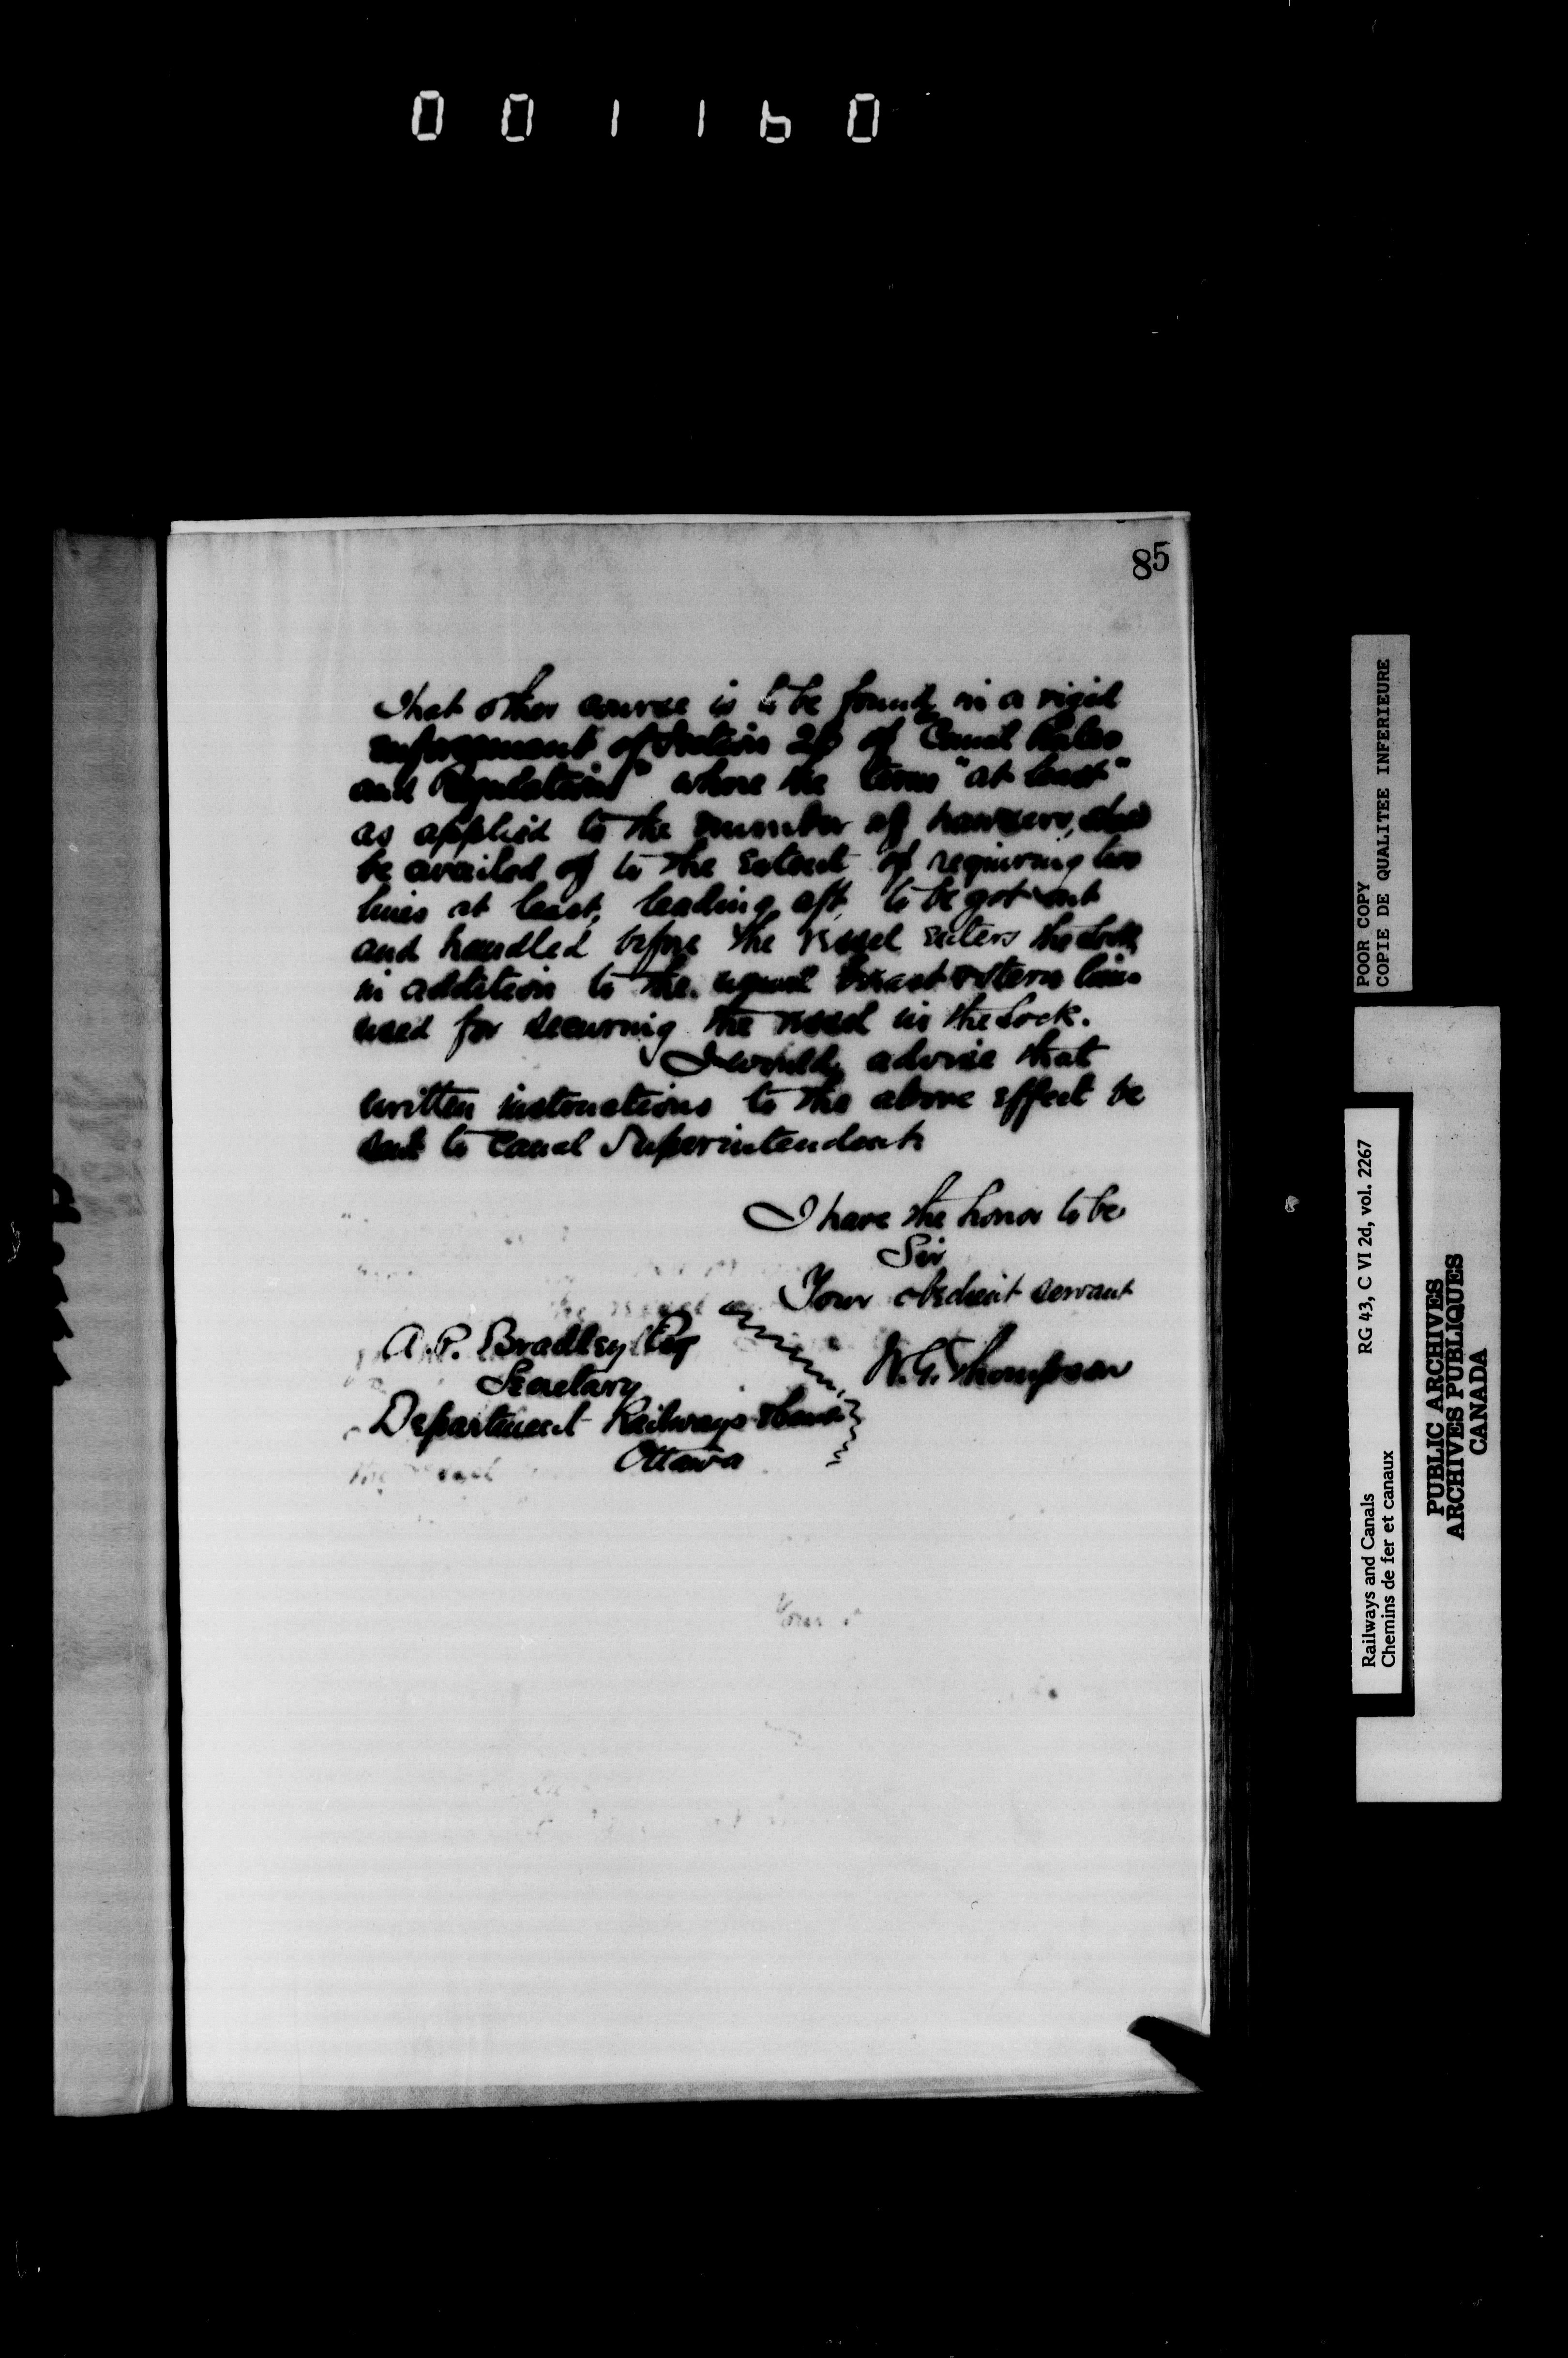 001160
85
That other course is to be found in a rigid
enforcement of Section 20 of "Canal Rules
and Regulations" where the term "at least"
as applied to the number of hawsers,
be availed of to the extent of requiring two
lines at least, leading aft, to be got out
and handled before the vessel enters the Lock
in addition to the usual breast & stern lines
used for securing the vessel in the Lock.
I would advise that
written instructions to the above effect be
sent to Canal Superintendents
I have the honor to be
Sir
Your obedient servant
W.G. Thompson
A.P. Bradley Esq
Secretary
Department Railways & Canals
Ottawa
POOR COPY
COPIE DE QUALITEE INFERIEURE
Railways and Canals RG 43, C VI 2d, vol. 2267
Chemins de fer et canaux
PUBLIC ARCHIVES
ARCHIVES PUBLIQUES
CANADA